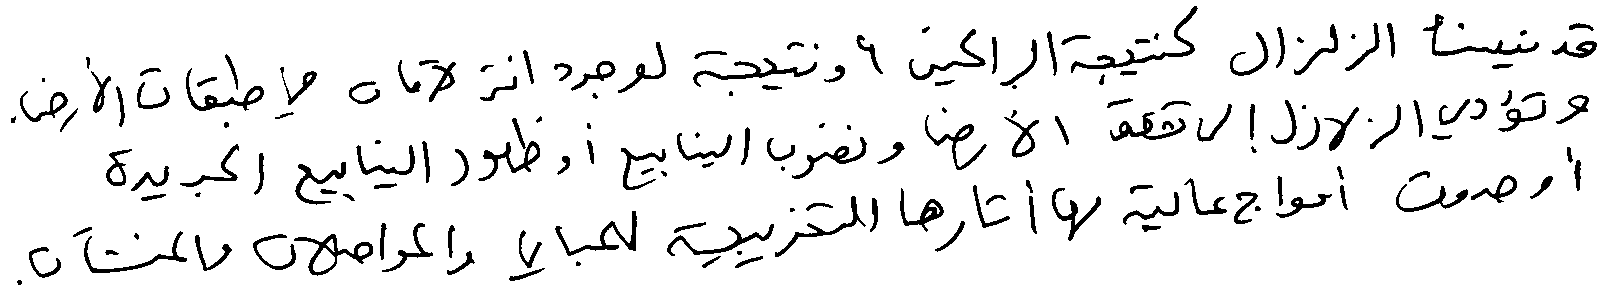 قد ينشأ الزلزال كنتيجة البراكين أو نتيجة لوجود انزلاقات في طبقات الأرض.
وتؤدي الزلازل إلى تشقق الأرض ونضوب الينابيع أو ظهور الينابيع الجديدة
أو حدوث أمواج عالية لها أثارها التخريبية للمباني والمواصلات والمنشآت.